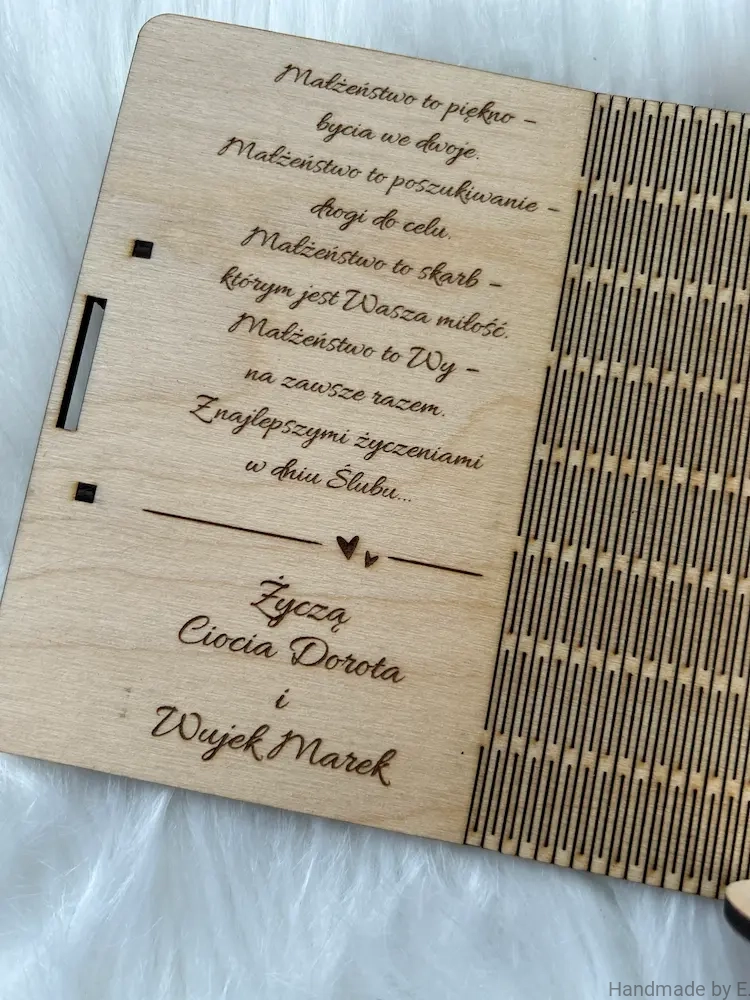 Małżeństwo to piękno –
bycia we dwoje.
Małżeństwo to poszukiwanie –
drogi do celu.
Małżeństwo to skarb –
którym jest Wasza miłość.
Małżeństwo to Wy –
na zawsze razem.
Znajlepszymi życzeniami
w dniu Ślubu...
Życzą
Ciocia Dorota
i
Wujek Marek
Handmade by E